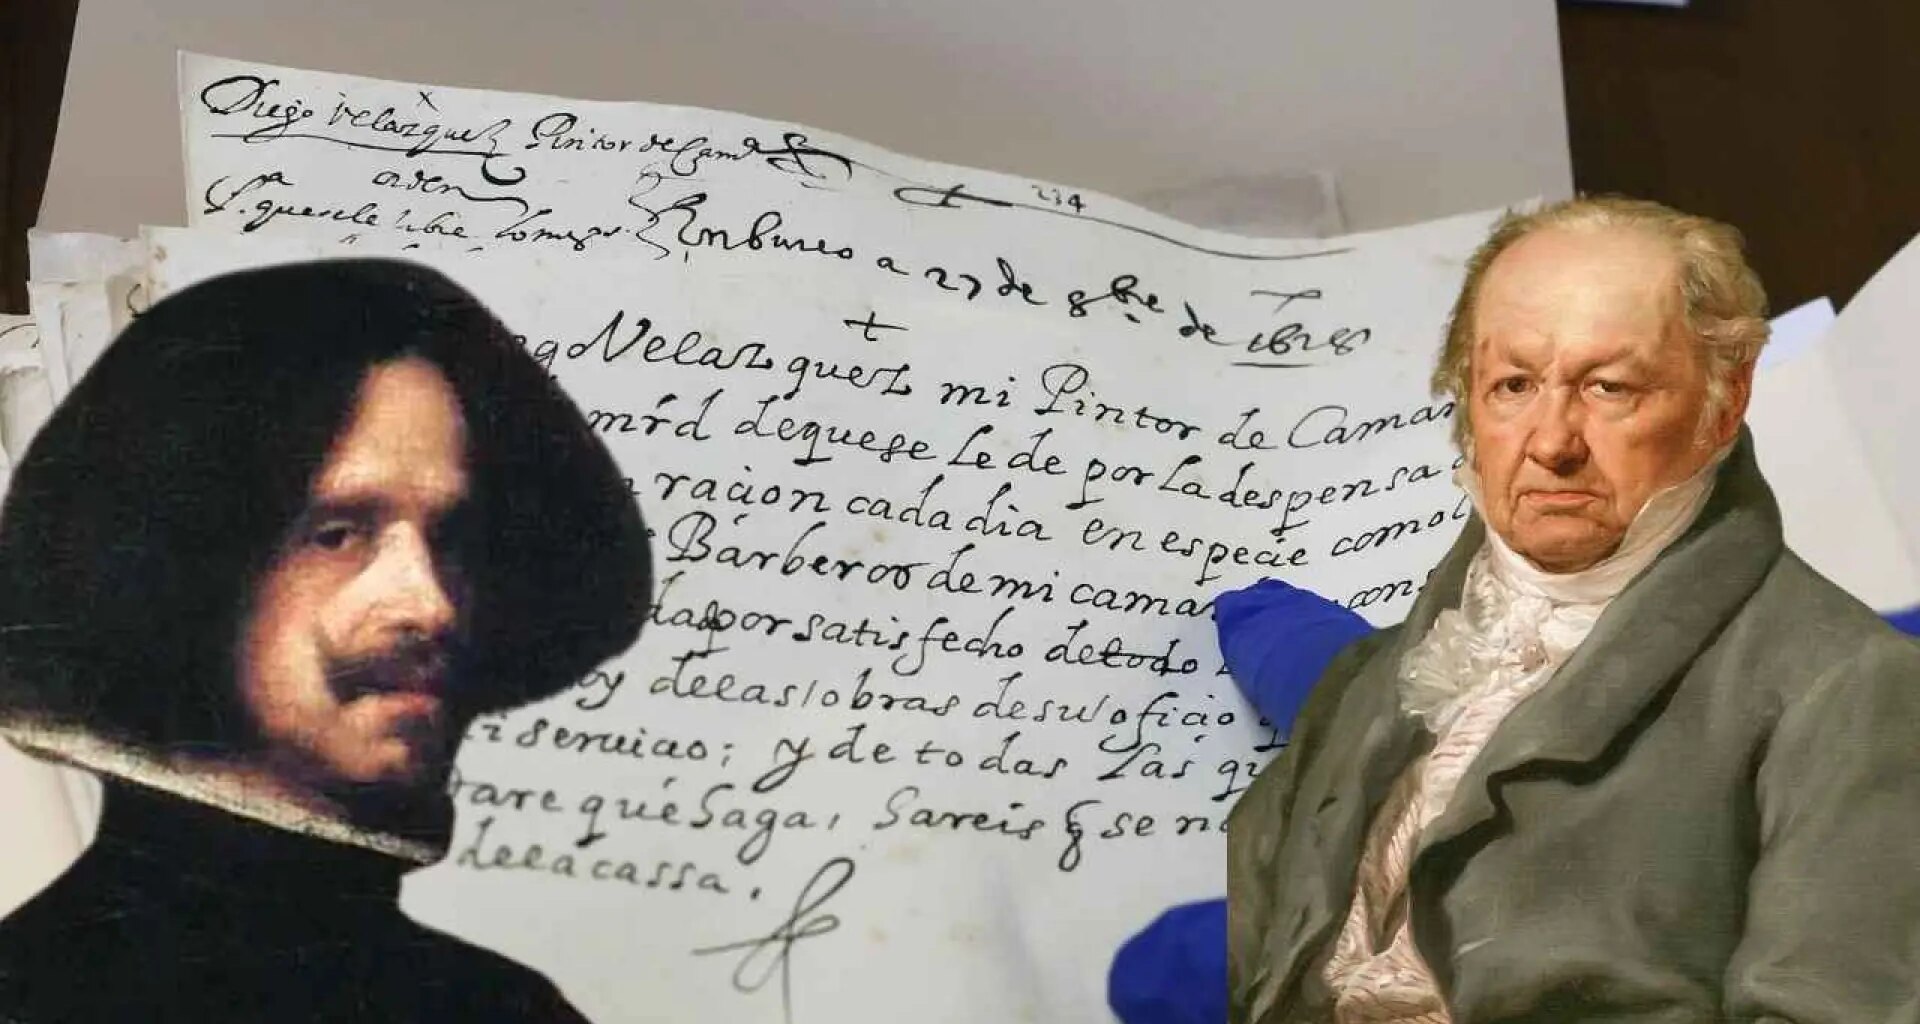 Diego Velazquez Pintor de Cam.ª
234
orden
Sª. que se le libre lo mismo. En bureo a 27 de 8bre de 1628
+
go Velazquez mi Pintor de Camar
mrd de que se le de por la despensa
racion cada dia en especie como
Barberos de mi camar cons
das por satisfecho de todo
oy de las obras de su oficio
i seruicio; y de todas las q
are que haga, hareis q se n
de la cassa.